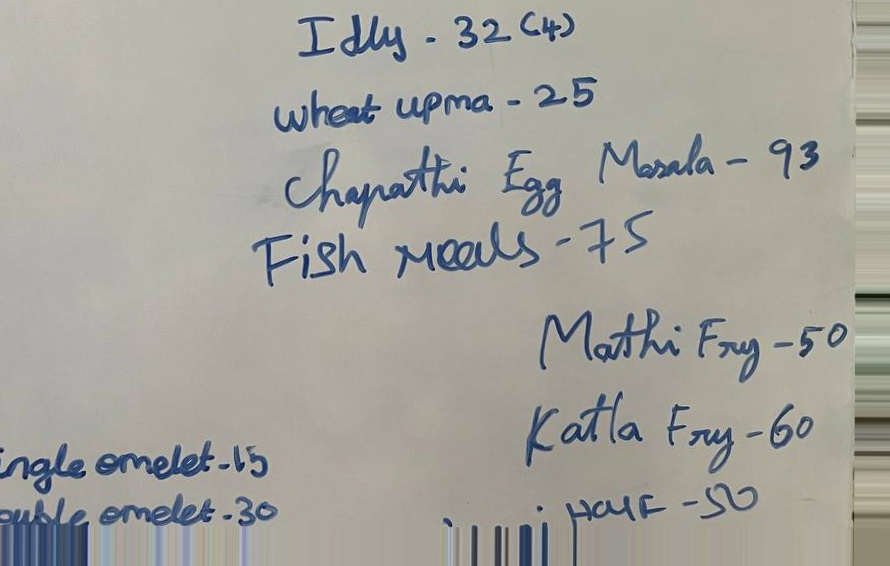 Idly - 32 (4)
wheat upma - 25
Chapathi Egg Masala - 93
Fish meals - 75
Mathi Fry - 50
Katla Fry - 60
ingle omelet - 15
ouble omelet - 30
Half - 50